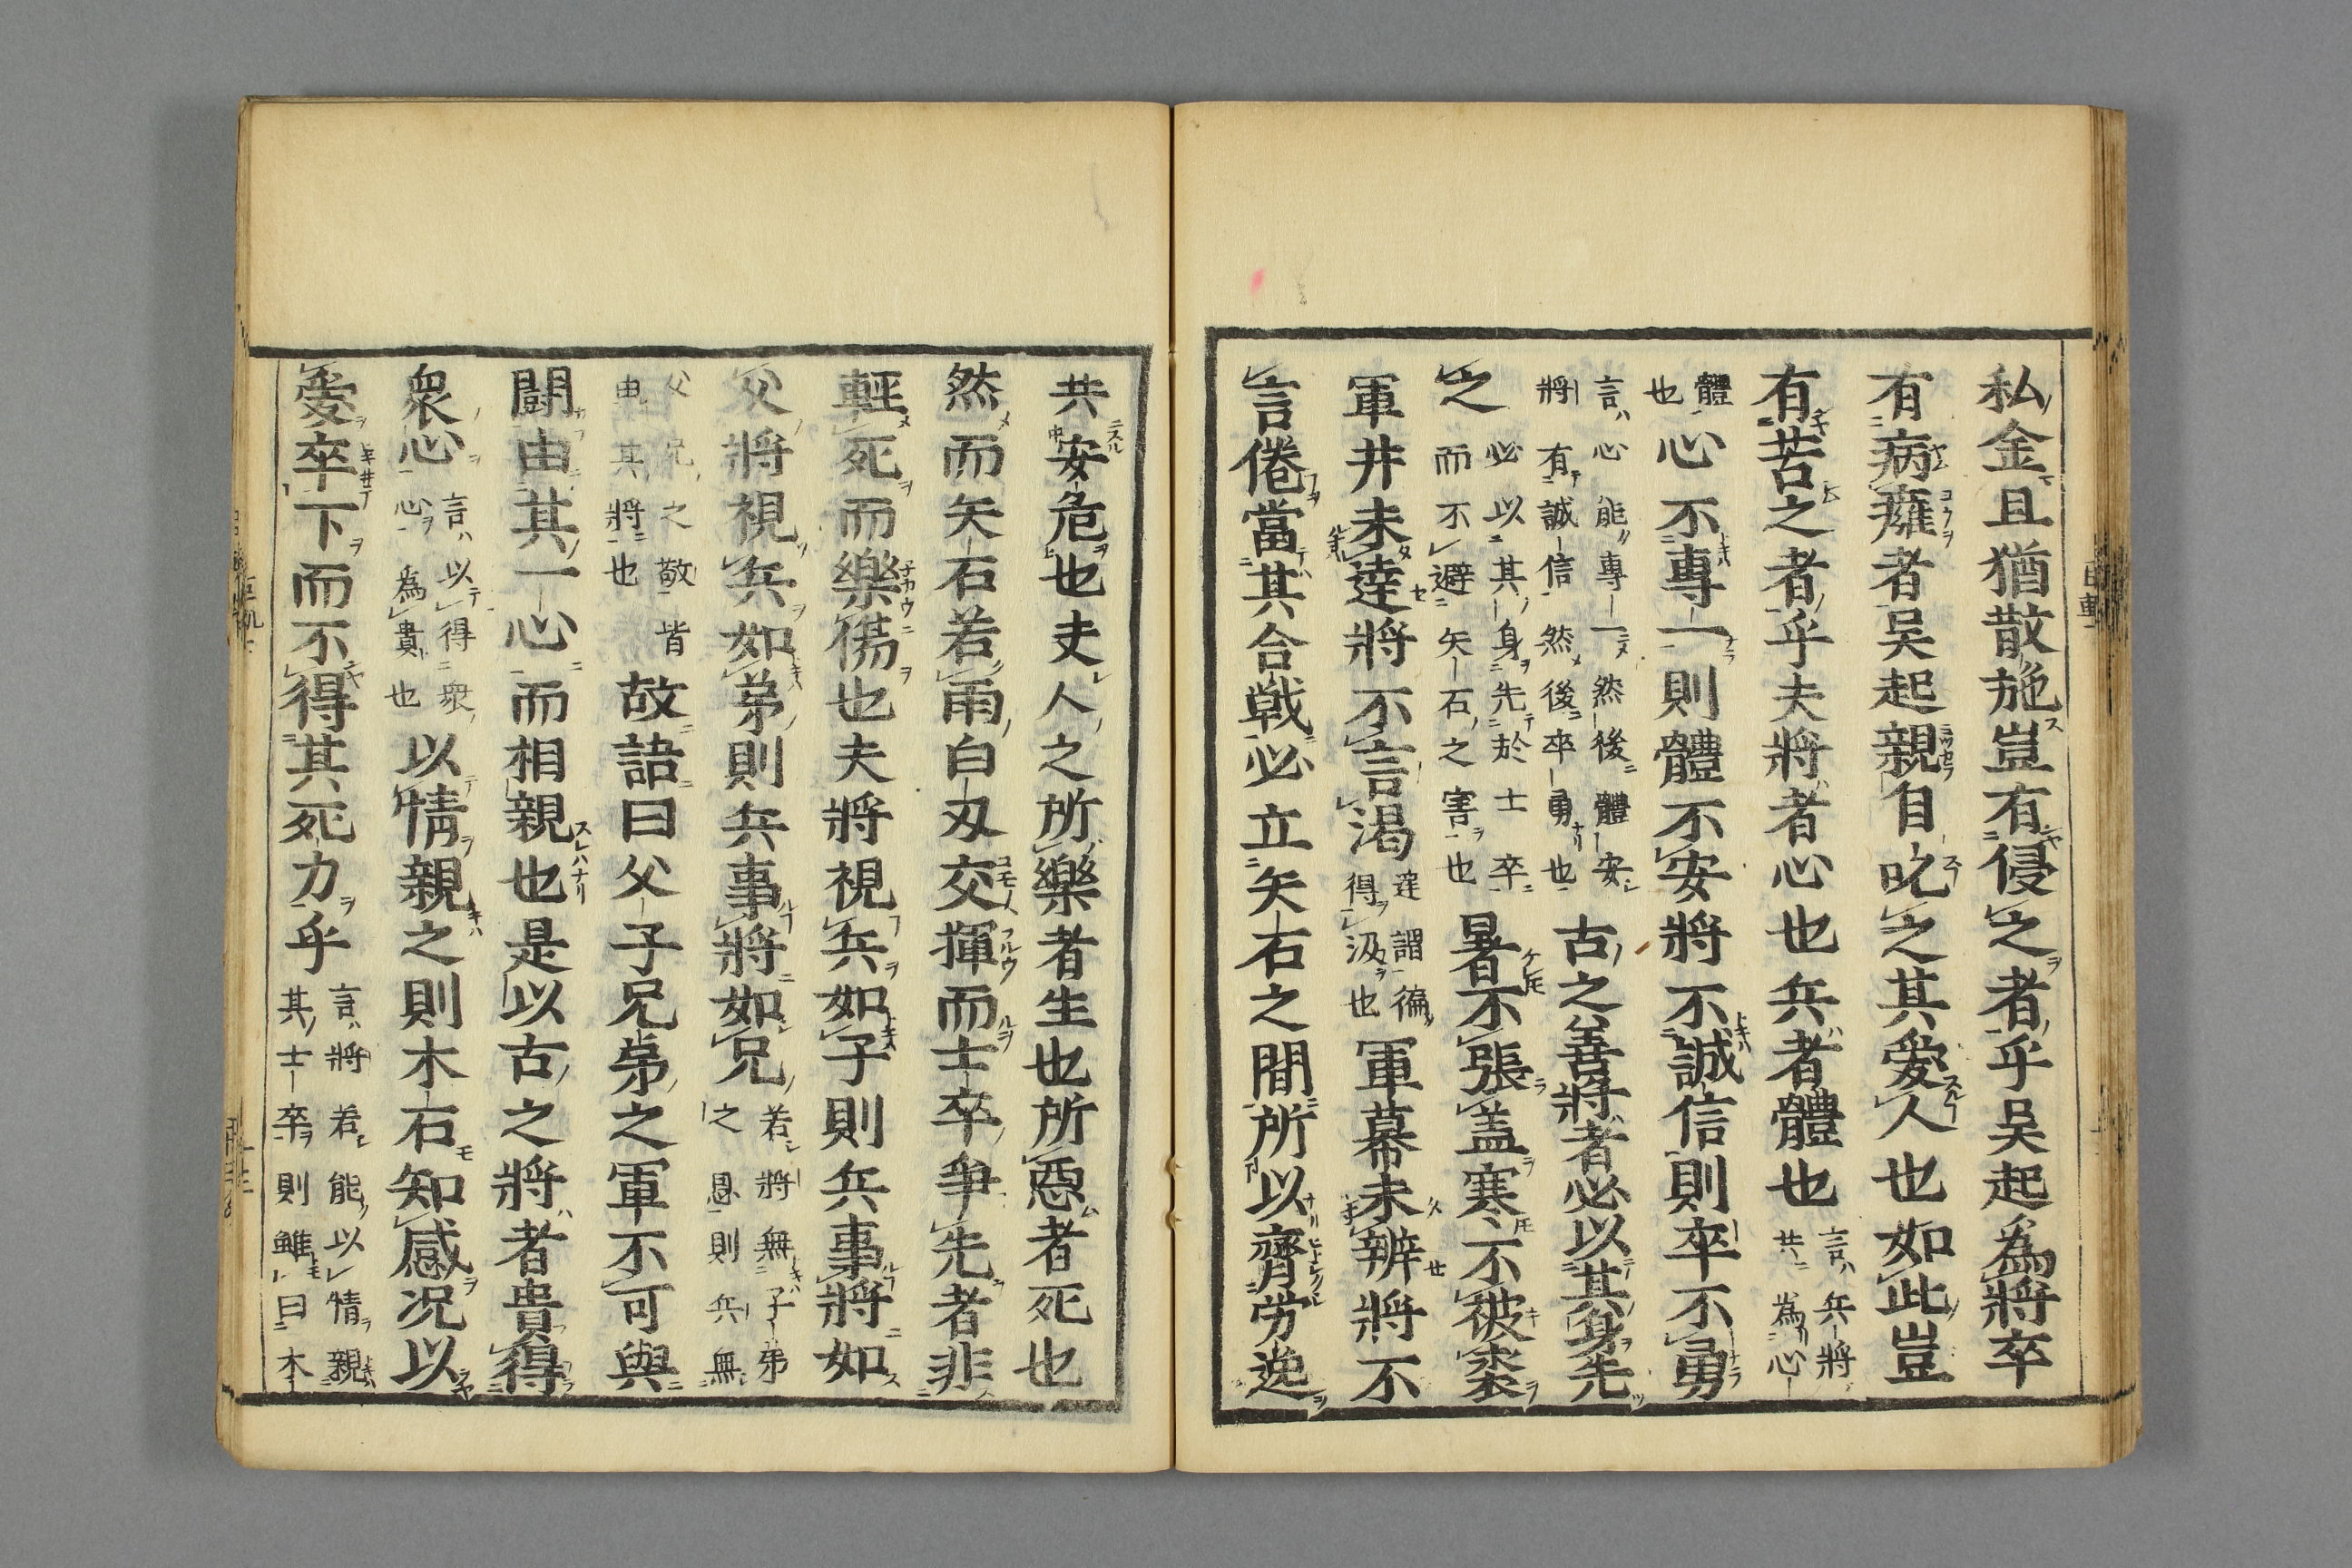 私金且猶散施豈有侵之者乎吳起爲將卒
有病癰者吳起親自吮之其愛人也如此豈
有苦之者乎夫將者心也兵者體也言兵將共爲心
體也心不專一則體不安將不誠信則卒不勇
言心能專一然後體安將有誠信然後卒勇也古之善將者必以其身先
之必以其身先於士卒而不避矢石之害也暑不張盖寒不被裘
軍井未達將不言渴達謂徧得汲也軍幕未辨將不
言倦當其合戰必立矢石之間所以齊劳逸
共安危也夫人之所樂者生也所惡者死也
然而矢石若雨白刃交揮而士卒爭先者非
輕死而樂傷也夫將視兵如子則兵事將如
父將視兵如弟則兵事將如兄若將無子弟之恩則兵無
父兄之敬皆由其將也故語曰父子兄弟之軍不可與
鬪由其一心而相親也是以古之將者貴得
衆心言以得衆心爲貴也以情親之則木石知感况以
愛卒下而不得其死力乎言將若能以情親其士卒則雖曰木